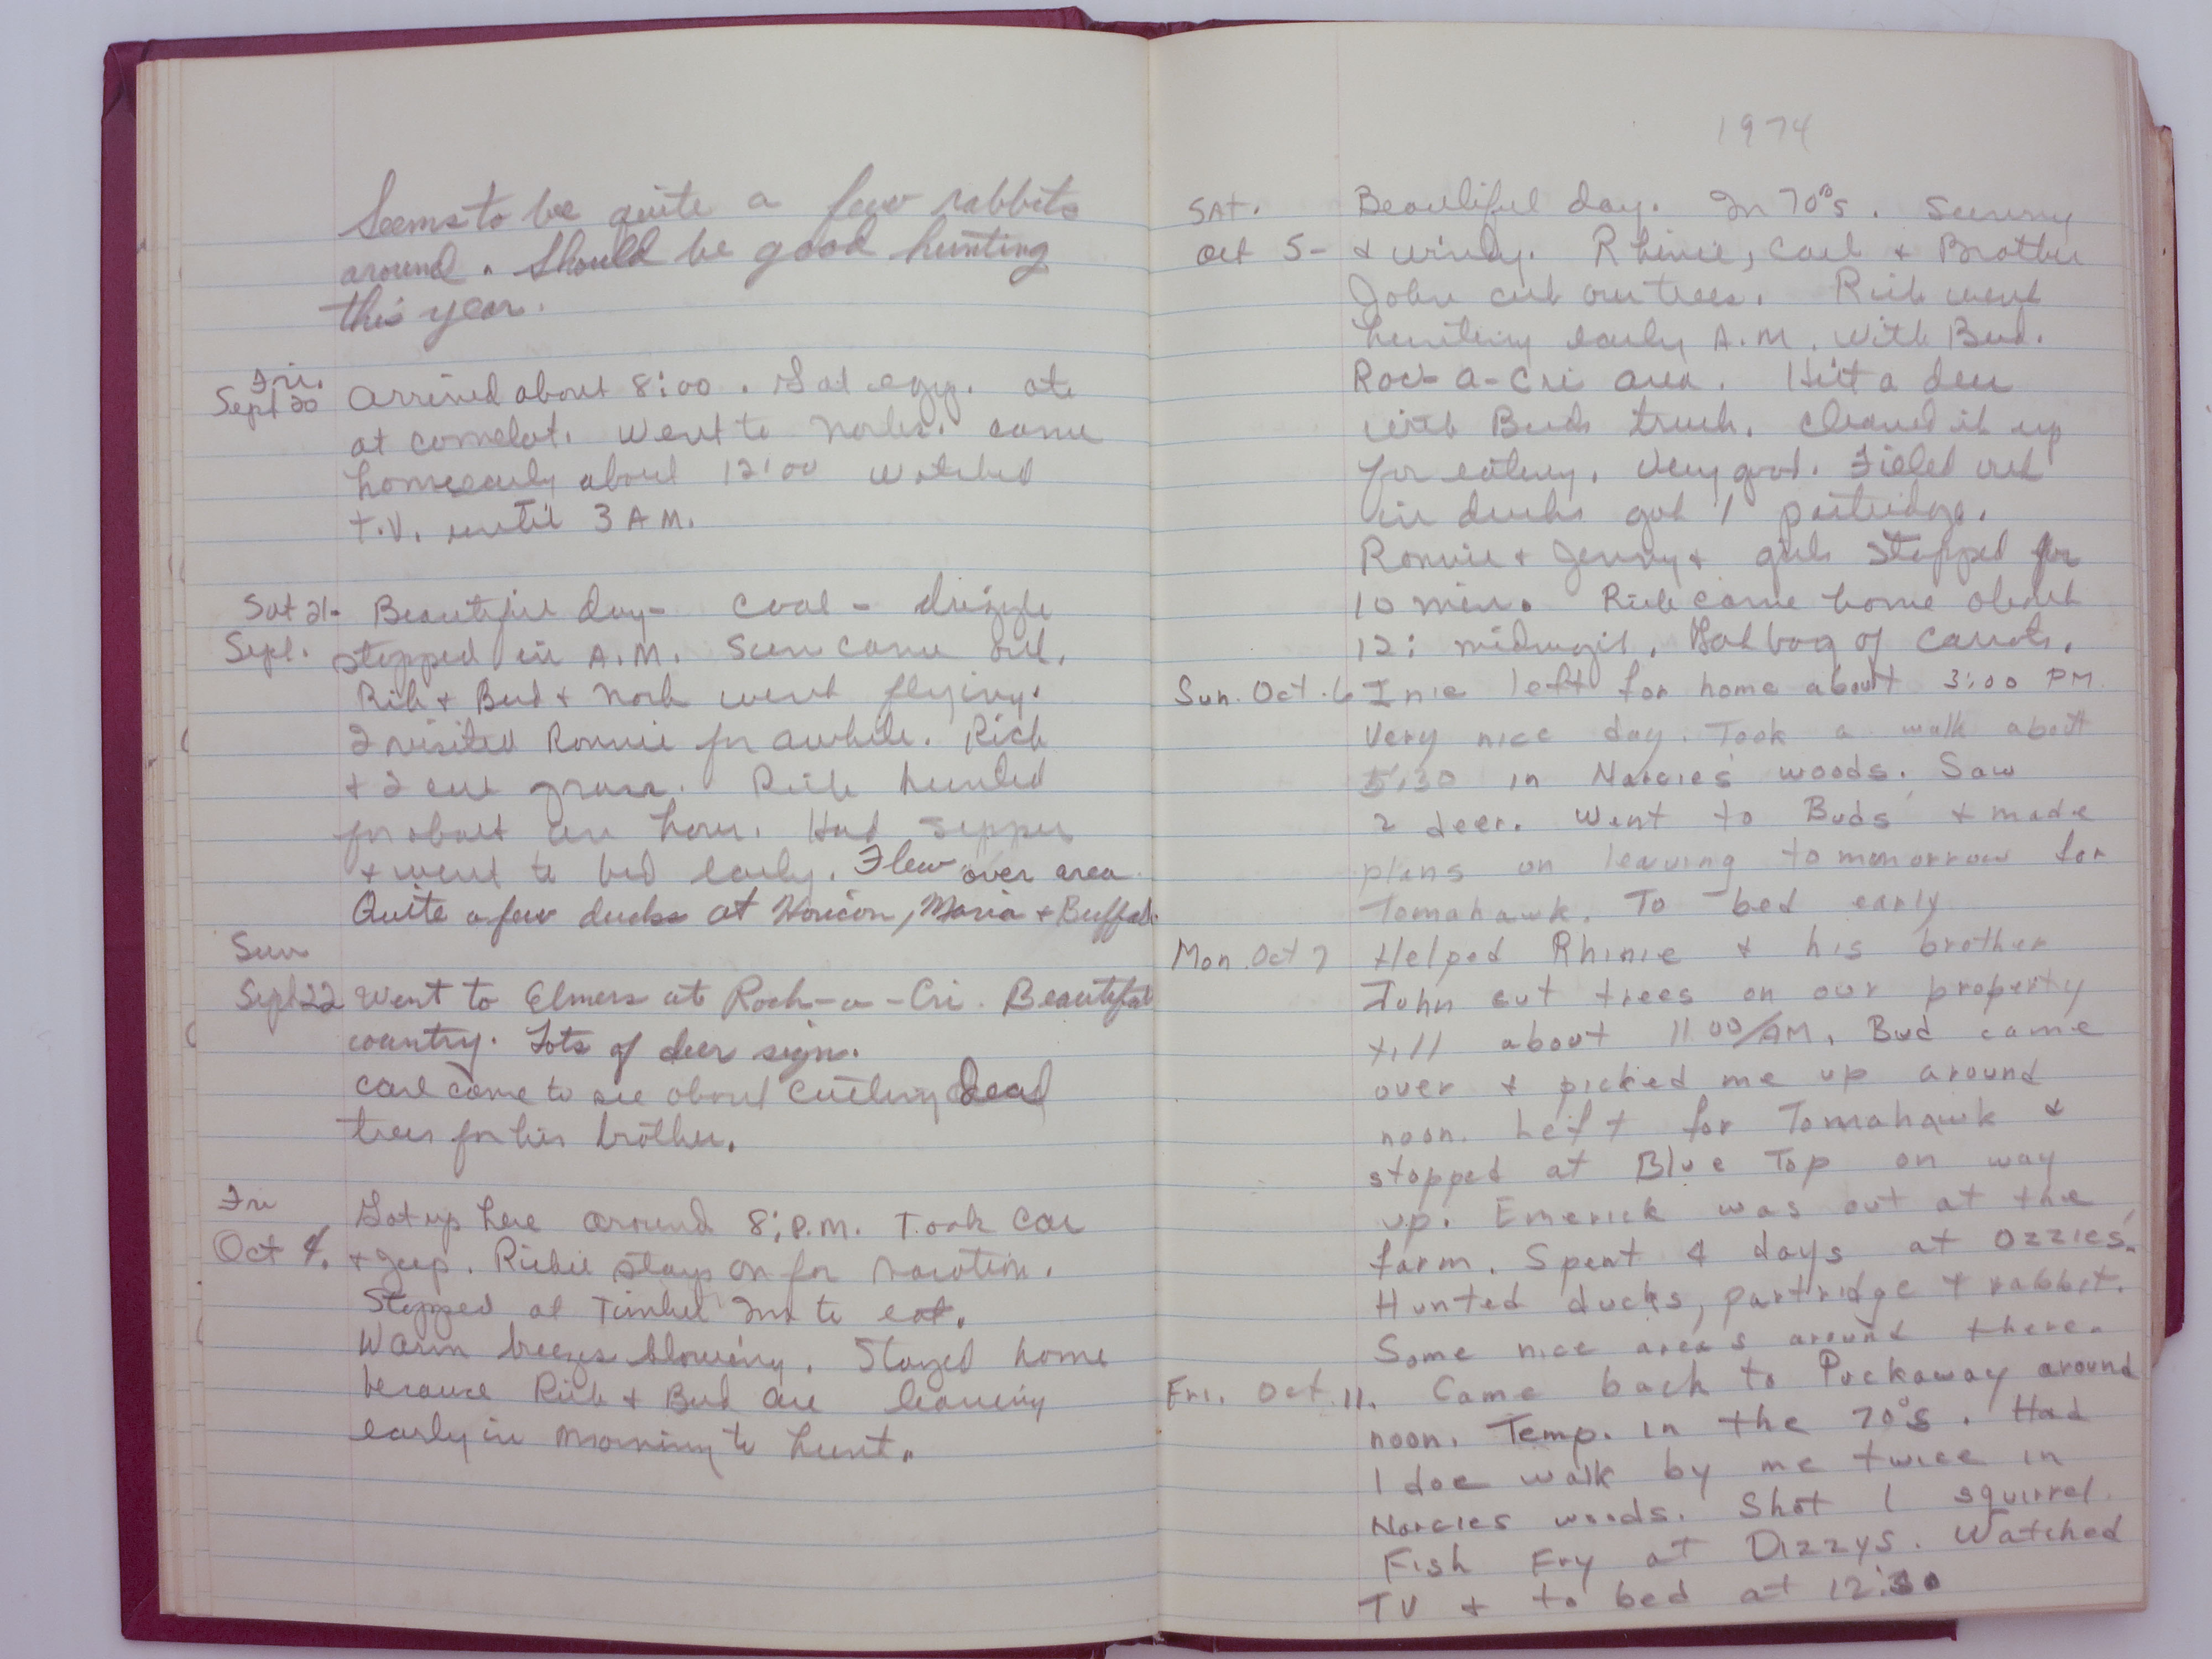 Seems to be quite a few rabbits
around. Should be good hunting
this year.
Fri.
Sept 20 Arrived about 8:00. Got eggs. ate
at comelot. Went to Norks. came
home early about 12:00 watched
T.V. until 3 A M.
Sat 21- Beautiful day- cool - drizzle
Sept. stopped in A.M. Sun came out.
Rich + Bud + Nork went flying.
I visited Ronnie for awhile. Rich
+ I cut grass. Rich hunted
for about an hour. Had supper
+ went to bed early. Flew over area
Quite a few ducks at Horicon, Maria + Buffalo.
Sun
Sept 22 Went to Elmers at Roch-a-Cri. Beautiful
country. Lots of deer sign.
Carl came to see about cutting dead
trees for his brother.
Fri
Oct 4. Got up here around 8; P.M. Took car
+ jeep. Richie stays on for vacation.
Stopped at Timber Inn to eat.
Warm breezes blowing. Stayed home
because Rich + Bud are leaving
early in morning to hunt.
1974
SAT. Beautiful day. In 70°s. Sunny
Oct 5- + windy. Rhinie, Carl + Brother
John cut our trees. Rich went
hunting early A.M. with Bud.
Roc-a-Cri area. Hit a deer
with Buds truck. Cleaned it up
for eating. Very good. Filled out
in ducks got 1 partridge.
Ronnie + Jenny + girls stopped for
10 min. Rich came home about
12: . Got bag of carrots.
Sun. Oct. 6 Inie left for home about 3:00 PM.
Very nice day. Took a walk about
5:30 in Narcies' woods. Saw
2 deer. Went to Buds' + made
plans on leaving tommorrow for
Tomahawk. To bed early
Mon. Oct 7 Helped Rhinie + his brother
John cut trees on our property
till about 11 00/AM. Bud came
over + picked me up around
noon. Left for Tomahawk +
stopped at Blue Top on way
up. Emerick was out at the
farm. Spent 4 days at Ozzies'.
Hunted ducks, partridge + rabbit.
Some nice area's around there.
Fri. Oct. 11. Came back to Puckaway around
noon. Temp. in the 70°s. Had
1 doe walk by me twice in
Narcies woods. Shot 1 squirrel.
Fish Fry at Dizzys. Watched
TV + to bed at 12:30